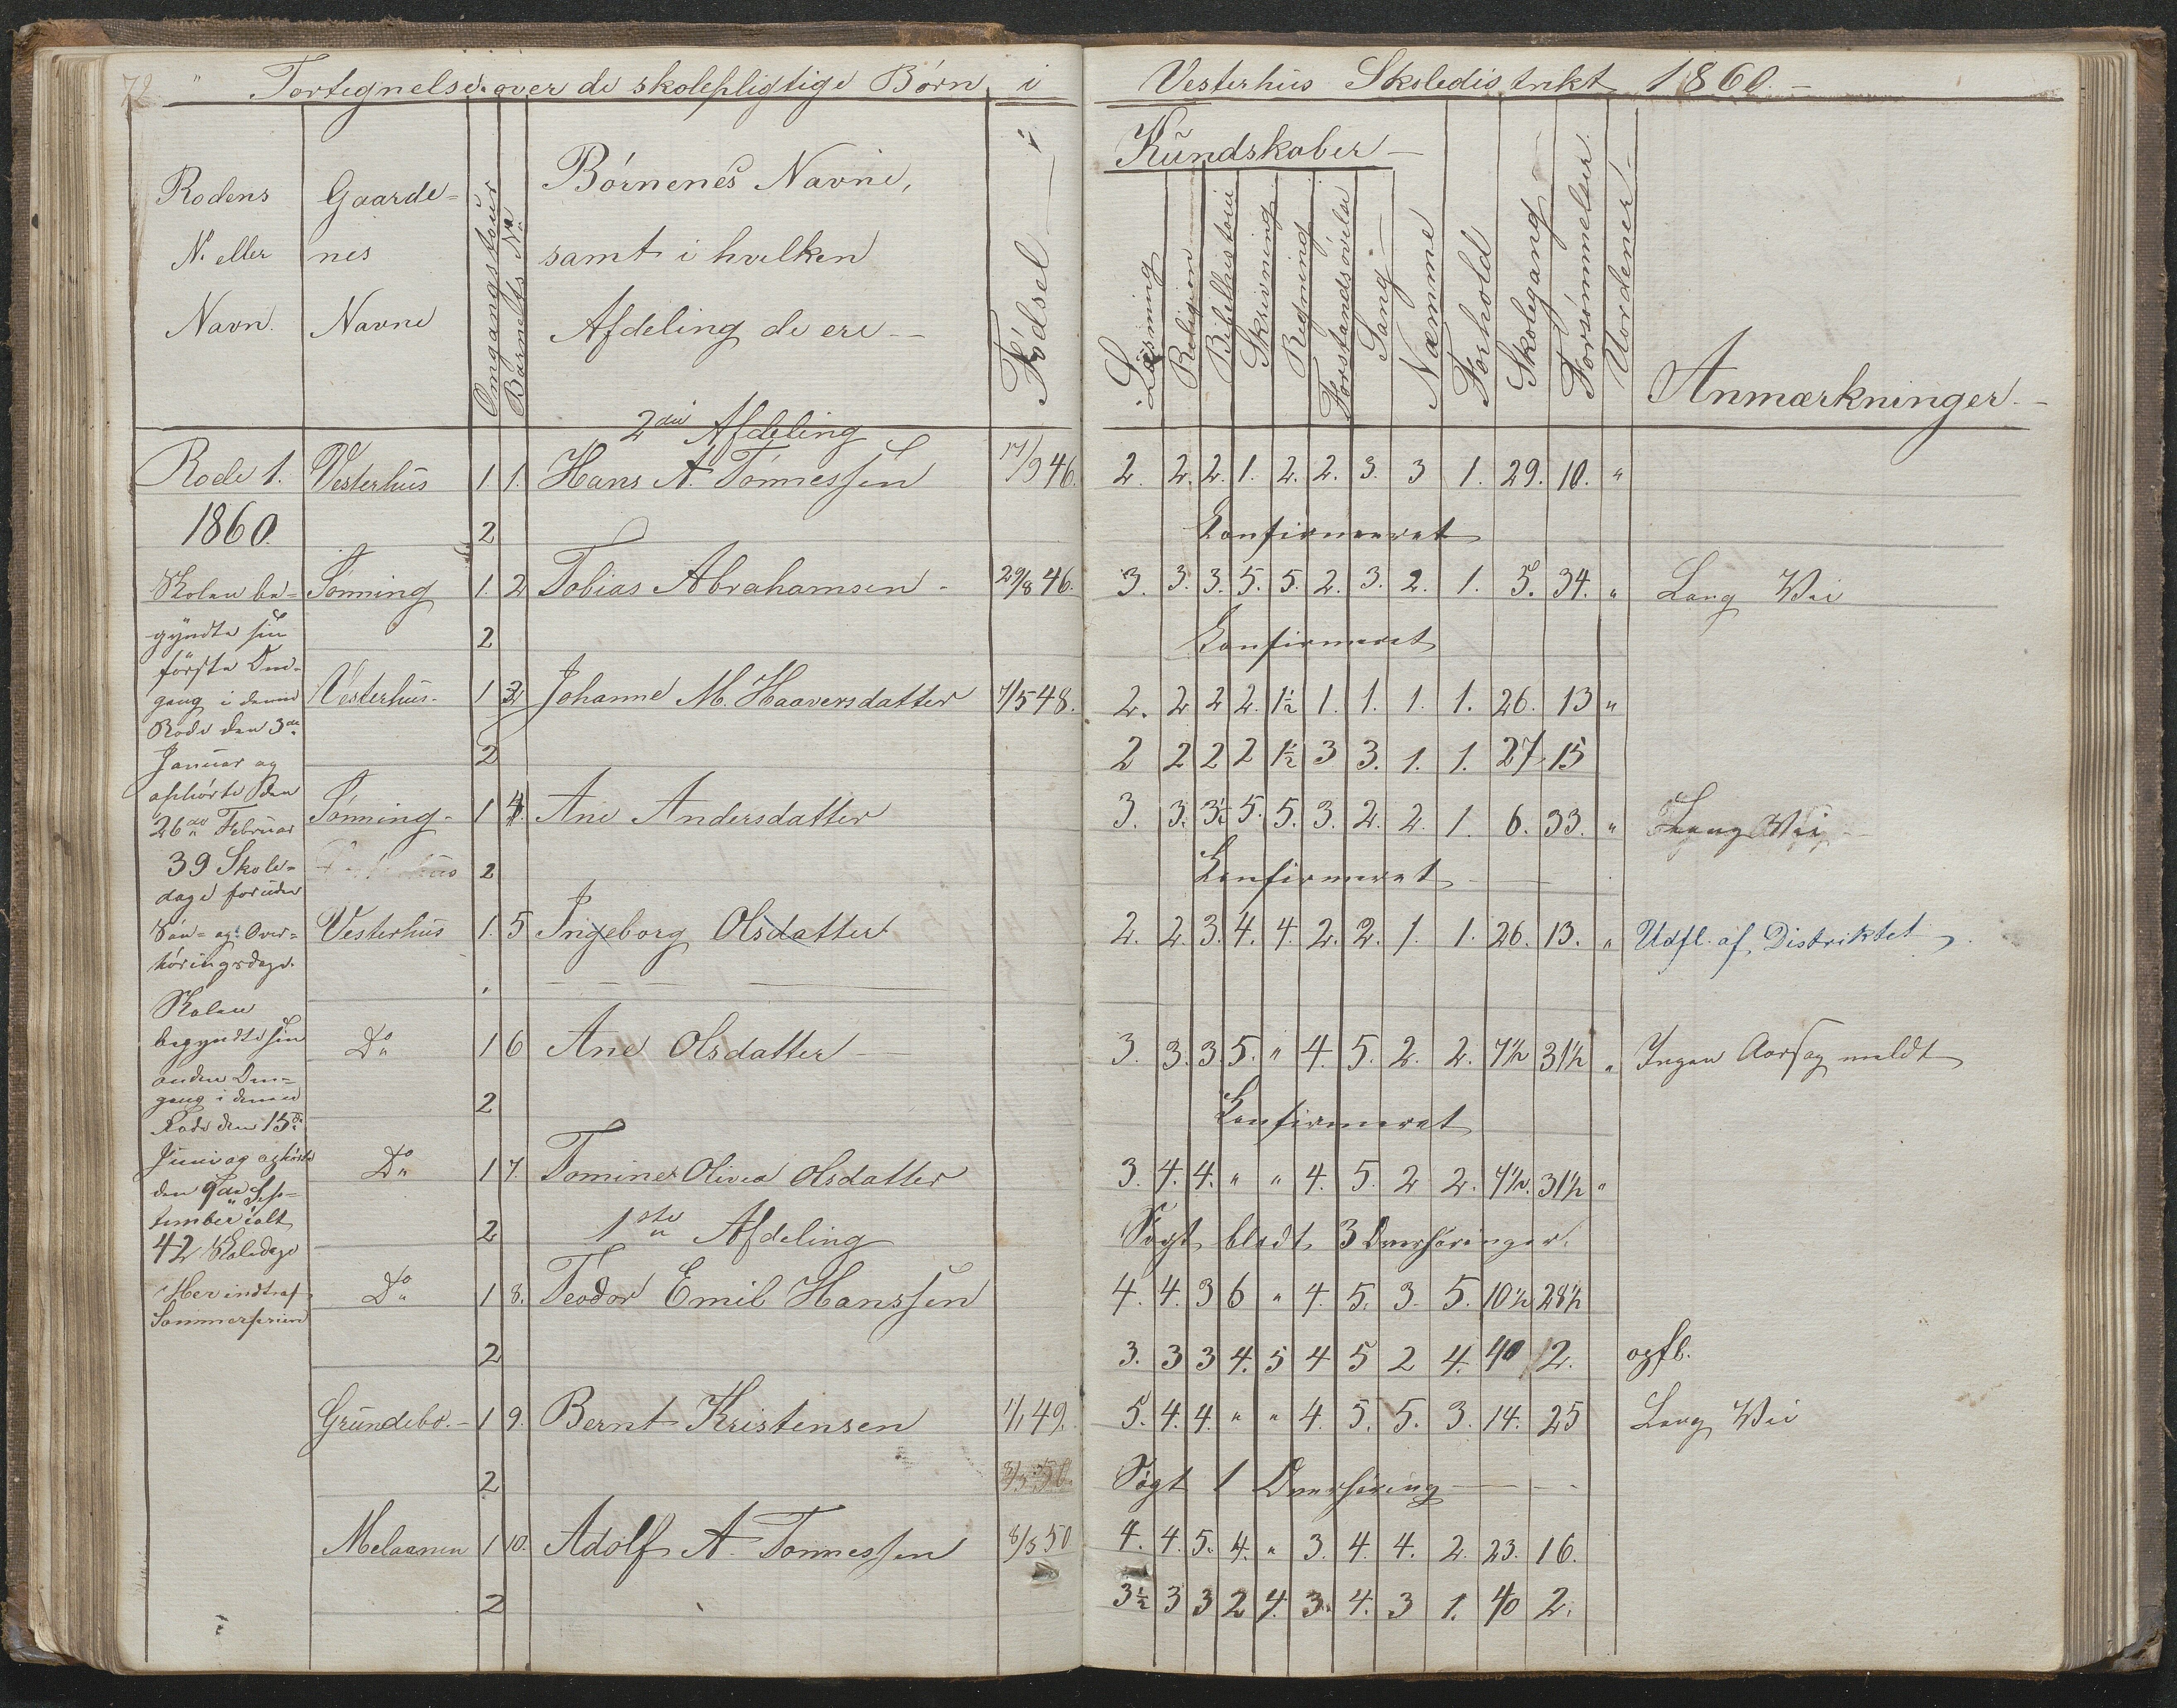 72 " Fortegnelse over de skolepligtige Børn i Vesterhüs Skoledistrikt 1860. –
Rodens No eller Navn.
Gaarde- nes Navne
Omgangstour
Barnets No
Børnenes Navne, samt i hvilken Afdeling de ere –
Fødsel
Kundskaber –
Læsning
Religion
Bibelhistorie
Skrivning
Regning
Forstandsøvelse
Sang
Næmme
Forhold
Skolegang
Forsømmelser
Uordener
Anmærkninger. –
2den Afdeling
Rode 1. Vesterhüs 1 1. Hans A. Tønnessen 17/9 46. 2. 2. 2. 1. 2. 2. 3. 3 1. 29. 10. "
1860. 2 Konfirmeret
Tønning 1. 2 Tobias Abrahamsen – 29/8 46. 3. 3. 3. 5. 5. 2. 3. 2. 1. 5. 34. " Lang Vei
2 Konfirmeret
Vesterhüs. 1 3 Johanne M. Haaversdatter 7/5 48. 2. 2 2 2. 1½ 1. 1. 1. 1. 26. 13 "
2 2 2 2 2 1½ 3 3. 1. 1. 27. 15
Tønning – 1 4. Ane Andersdatter 3. 3. 3½ 5. 5. 3. 2. 2. 1. 6. 33. " Lang Vei
2 Konfirmeret –
Vesterhüs 1. 5 Ingeborg Olsdatter 2. 2. 3. 4. 4. 2. 2. 1. 1. 26. 13. " Udfl. af Distriktet
Do 1 6 Ane Olsdatter – 3. 3. 3. 5. " 4. 5. 2. 2. 7½ 31½ " Ingen Aarsag meldt
2 Konfirmeret
Do 1 7. Tomine Olivea Olsdatter 3. 4. 4. " " 4. 5. 2 2. 7½. 31½ "
2 1ste Afdeling Søgt blodt 3 Overhøringer.
Do 1 8. Teodor Emil Hanssen 4. 4. 3 6 " 4. 5. 3. 5. 10½ 28½
2 3. 3 3 4. 5 4 5 2 4. 40 2. opfl.
Gründebo. – 1 9. Bernt Kristensen 1/1 49. 5. 4. 4. " " 4. 5. 5. 3. 14. 25 Lang Vei
2 Søgt 1 Overhøring – –
Melaanen 1 10. Adolf A. Tønnessen 8/3 50 4. 4. 5. 4. " 3. 4. 4. 2. 23. 16.
2 3½ 3 3 2 4. 3. 4. 3 1. 40 2.
Skolen be-
gyndte sin
første Om-
gang i denne
Rode den 3de
Januar og
ophørte den
26de Februar
39 Skole-
dage foruden
Søn- og Over-
høringsdage.
Skolen
begyndte sin
anden Om-
gang i denne
Rode den 15de
Juni og ophørte
den 9de Sep-
tember ialt
42 Skoledage
Her indtraf
Sommerferien